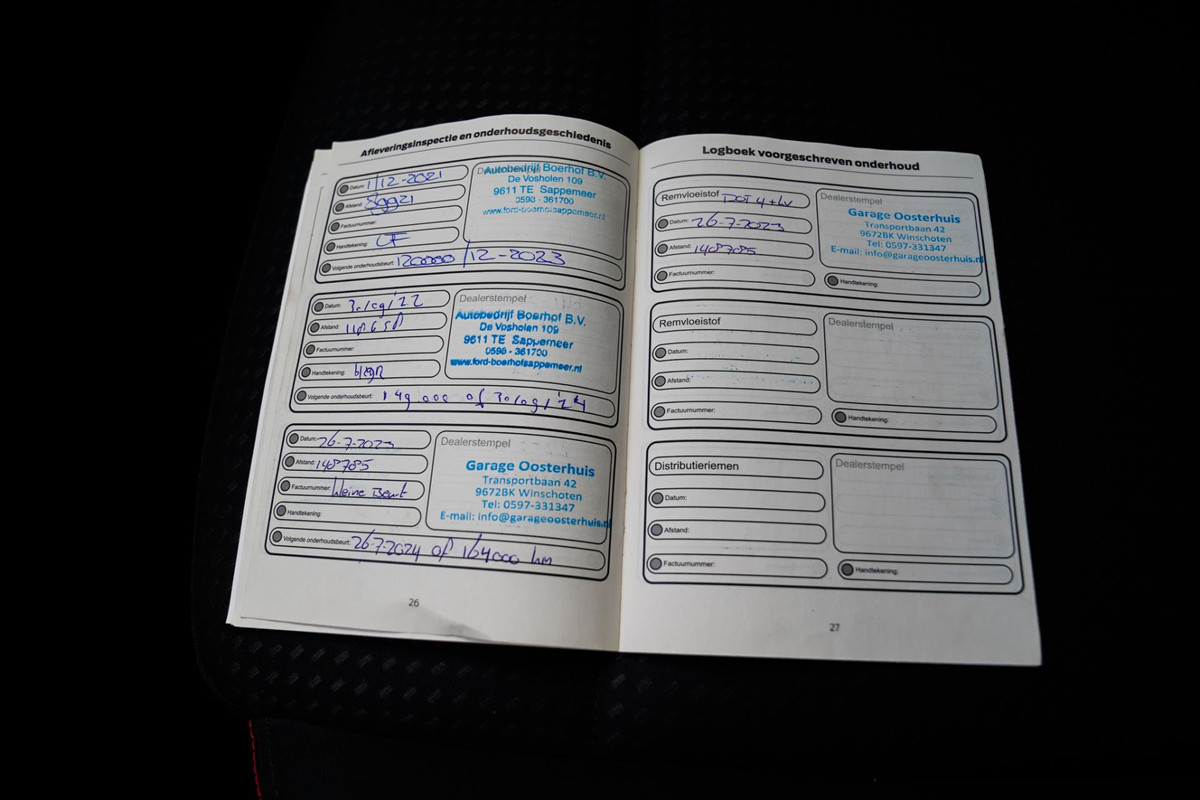 Afleveringsinspectie en onderhoudsgeschiedenis
Datum: 1/12-2021
Afstand: 89921
Factuurnummer:
Handtekening:
Volgende onderhoudsbeurt: 120000 /12-2023
Dealerstempel
Autobedrijf Boerhof B.V.
De Vosholen 109
9611 TE Sappemeer
0598 - 361700
www.ford-boerhofsappemeer.nl
Datum: 30/09/'22
Afstand:
Factuurnummer:
Handtekening:
Volgende onderhoudsbeurt: 149 000 of 30/09/'24
Dealerstempel
Autobedrijf Boerhof B.V.
De Vosholen 109
9611 TE Sappemeer
0598 - 361700
www.ford-boerhofsappemeer.nl
Datum: 26-7-2023
Afstand: 148785
Factuurnummer: kleine Beurt
Handtekening:
Volgende onderhoudsbeurt: 26-7-2024 of 164000 km
Dealerstempel
Garage Oosterhuis
Transportbaan 42
9672BK Winschoten
Tel: 0597-331347
E-mail: info@garageoosterhuis.nl
26
Logboek voorgeschreven onderhoud
Remvloeistof DOT 4 + LV
Datum: 26-7-2023
Afstand: 148785
Factuurnummer:
Dealerstempel
Garage Oosterhuis
Transportbaan 42
9672BK Winschoten
Tel: 0597-331347
E-mail: info@garageoosterhuis.nl
Handtekening:
Remvloeistof
Datum:
Afstand:
Factuurnummer:
Dealerstempel
Handtekening:
Distributieriemen
Datum:
Afstand:
Factuurnummer:
Dealerstempel
Handtekening:
27